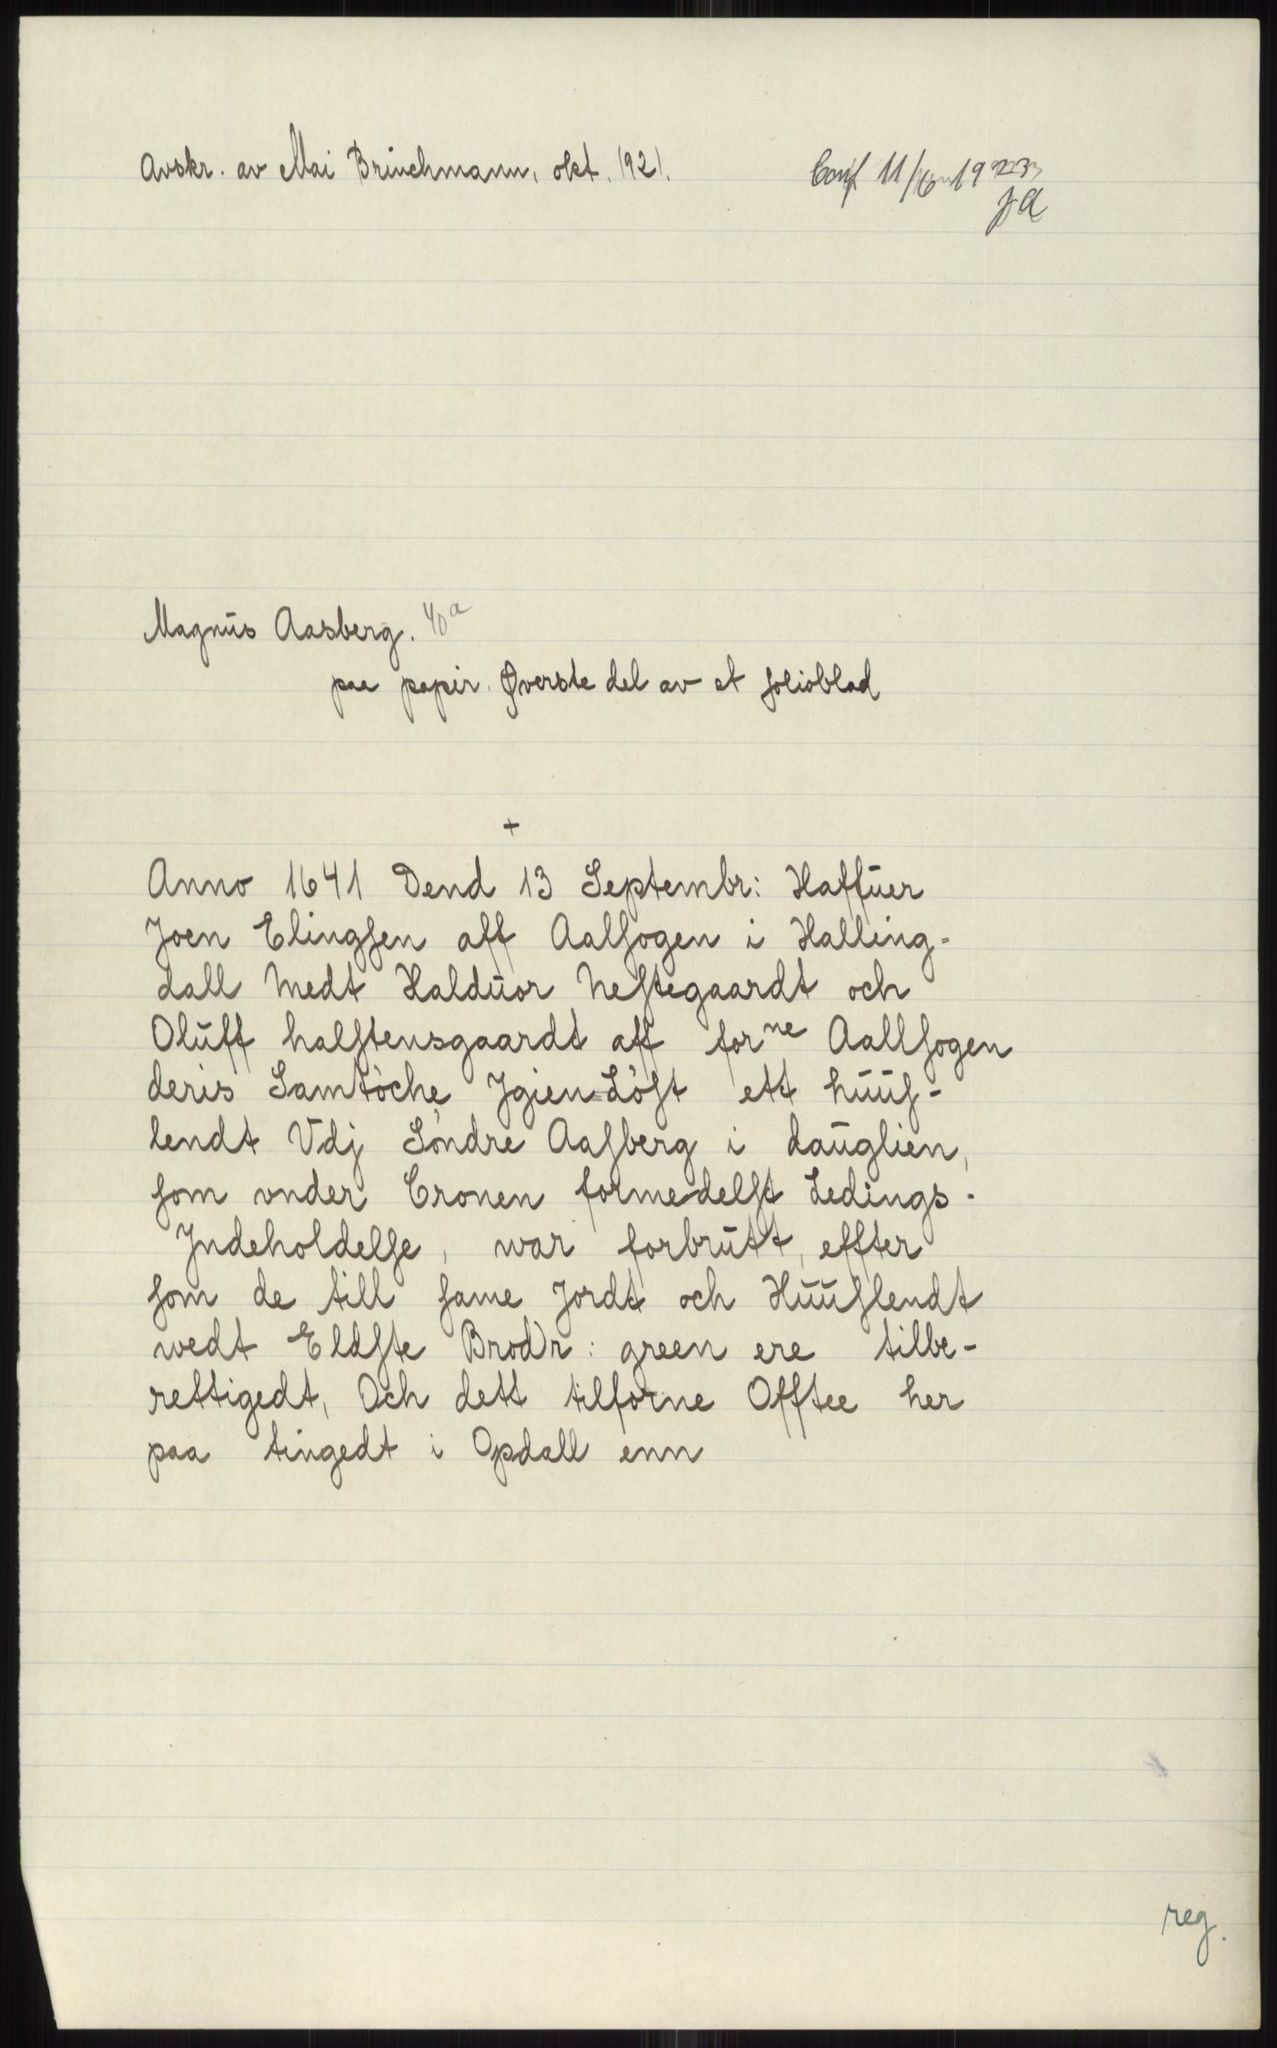 Avskr. av Mai Brinchmann, okt. 1921.
Conf 11/6 1923
JA
Magnus Aasberg.
paa papir. Øverste del av et folioblad
+
Anno 1641 Dend 13 Septembr: Haffuer
Joen Elingsen aff Aalsogen i Halling-
dall Medt Halduor Nestegaardt och
Oluff halstensgaardt aff forne Aallsogen
deris Samtöche Jgien-Löst ett huus-
lendt Vdj Söndre Aasberg i dauglien,
som vnder Cronen formedelst Ledings-
Jndeholdelse, war forbrutt, effter
som de till same Jordt och Huuslendt
wedt Eldste Brodr: green ere tilbe-
rettigedt, Och dett tilforne Offtee her
paa tingedt i Opdall enn
reg.